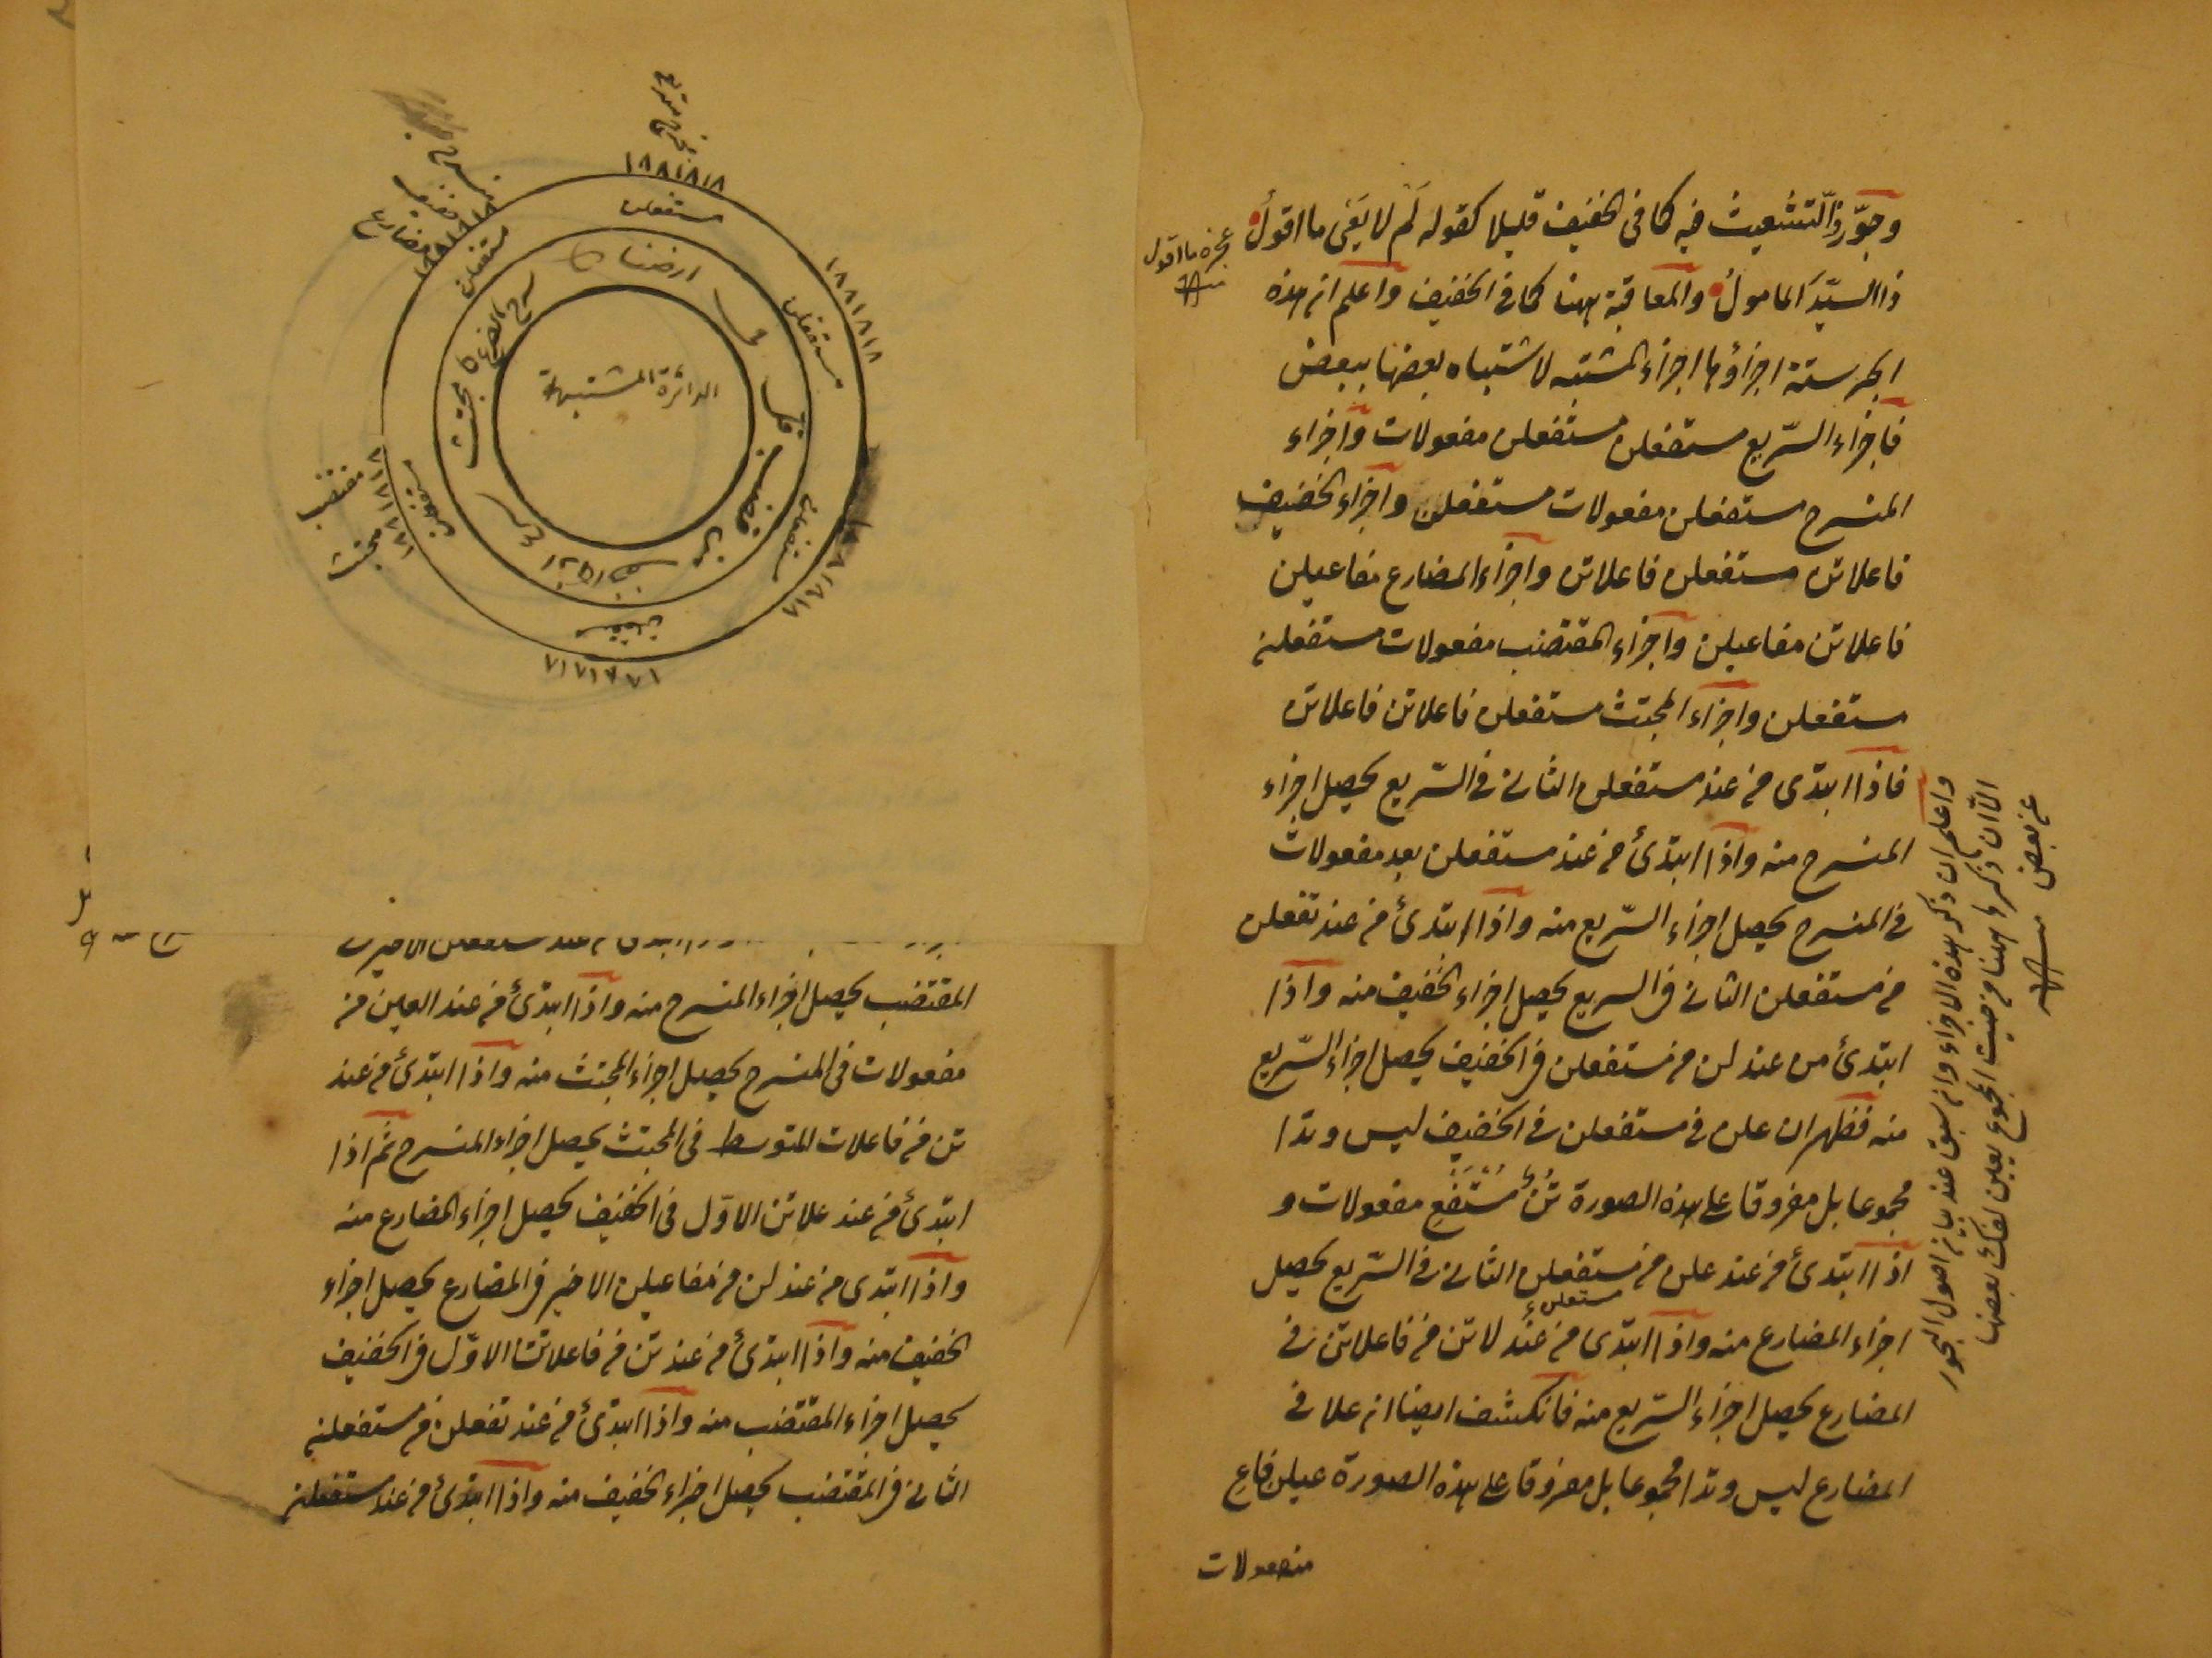 وجوّزوا التشعيث فيه كما في الخفيف قليلا كقوله لم لا يعى ما اقول
ذا السيّد المامول والمعاقبة ههنا كما في الخفيف واعلم ان هذه
ابحر ستة اجزاؤها اجزاء المشتبه لاشتباه بعضها ببعض
فاجزاء السّريع مستفعلن مستفعلن مفعولات واجزاء
المنسرح مستفعلن مفعولات مستفعلن واجزاء الخفيف
فاعلاتن مستفعلن فاعلاتن واجزاء المضارع مفاعيلن
فاعلاتن مفاعيلن واجزاء المقتضب مفعولات مستفعلن
مستفعلن واجزاء المجتث مستفعلن فاعلاتن فاعلاتن
فاذا ابتدى من عند مستفعلن الثاني في السّريع يحصل اجزاء
المنسرح منه واذا ابتدئ من عند مستفعلن بعد مفعولات
في المنسرح يحصل اجزاء السّريع منه واذا ابتدئ من عند تفعلن
من مستفعلن الثاني في السريع يحصل اجزاء الخفيف منه واذا
ابتدئ من عند لن من مستفعلن في الخفيف يحصل اجزاء السّريع
منه فظهر ان علن في مستفعلن في الخفيف ليس وتدا
مجموعا بل مفروقا على هذه الصورة تن مستفع مفعولات و
اذا ابتدئ من عند علن من مستفعلن الثاني في السّريع يحصل
اجزاء المضارع منه واذا ابتدى من عند لاتن من فاعلاتن في
مستعلن
المضارع يحصل اجزاء السّريع منه فانكشف ايضا ان علا في
المضارع ليس وتدا مجموعا بل مفروقا على هذه الصورة عيلن فاع
مفعولات
عجزه ما اقول
منه
واعلم ان ذكر هذه الاجزاء وان سبق عند بيان اصول البحور
الّا ان ذكرها ههنا من حيث المجموع ليعلن لفك بعضها
عن بعض منه
مستفعلن
مستفعلن
مستفعلن
مستفعلن
مستفعلن
مستفعلن
الدائرة المشتبهة
خفيف
مضارع
مقتضب
مجتث
ابتدئ من عند مستفعلن الاخير في
المقتضب يحصل اجزاء المنسرح منه واذا ابتدئ من عند العين من
مفعولات في المنسرح يحصل اجزاء المجتث منه واذا ابتدئ من عند
تن من فاعلات المتوسط في المجتث يحصل اجزاء المنسرح ثم اذا
ابتدئ من عند علاتن الاوّل في الخفيف يحصل اجزاء المضارع منه
واذا ابتدى من عند لن من مفاعيلن الاخير في المضارع يحصل اجزاء
الخفيف منه واذا ابتدئ من عند تن من فاعلاتن الاوّل في الخفيف
يحصل اجزاء المقتضب منه واذا ابتدئ من عند تفعلن من مستفعلن
الثاني في المقتضب يحصل اجزاء الخفيف منه واذا ابتدئ من عند مستفعلن